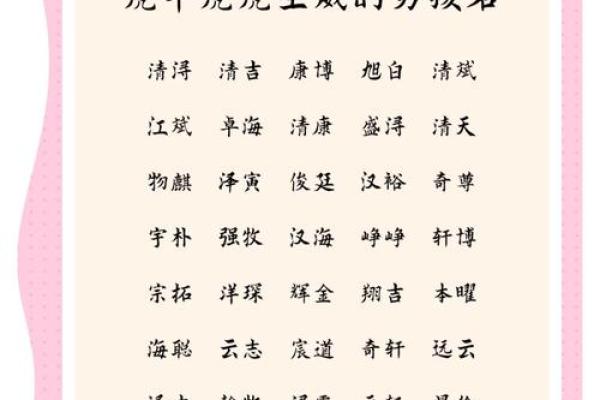 虎年虎虎生威的男孩名
清浔 清吉 康博 旭白 清斌
江斌 卓海 清康 盛浔 清天
物麒 泽寅 俊廷 汉裕 奇尊
宇朴 强牧 汉海 峥峥 轩博
宗拓 洋琛 辉金 翔吉 本曜
海聪 云志 宸道 奇轩 远云